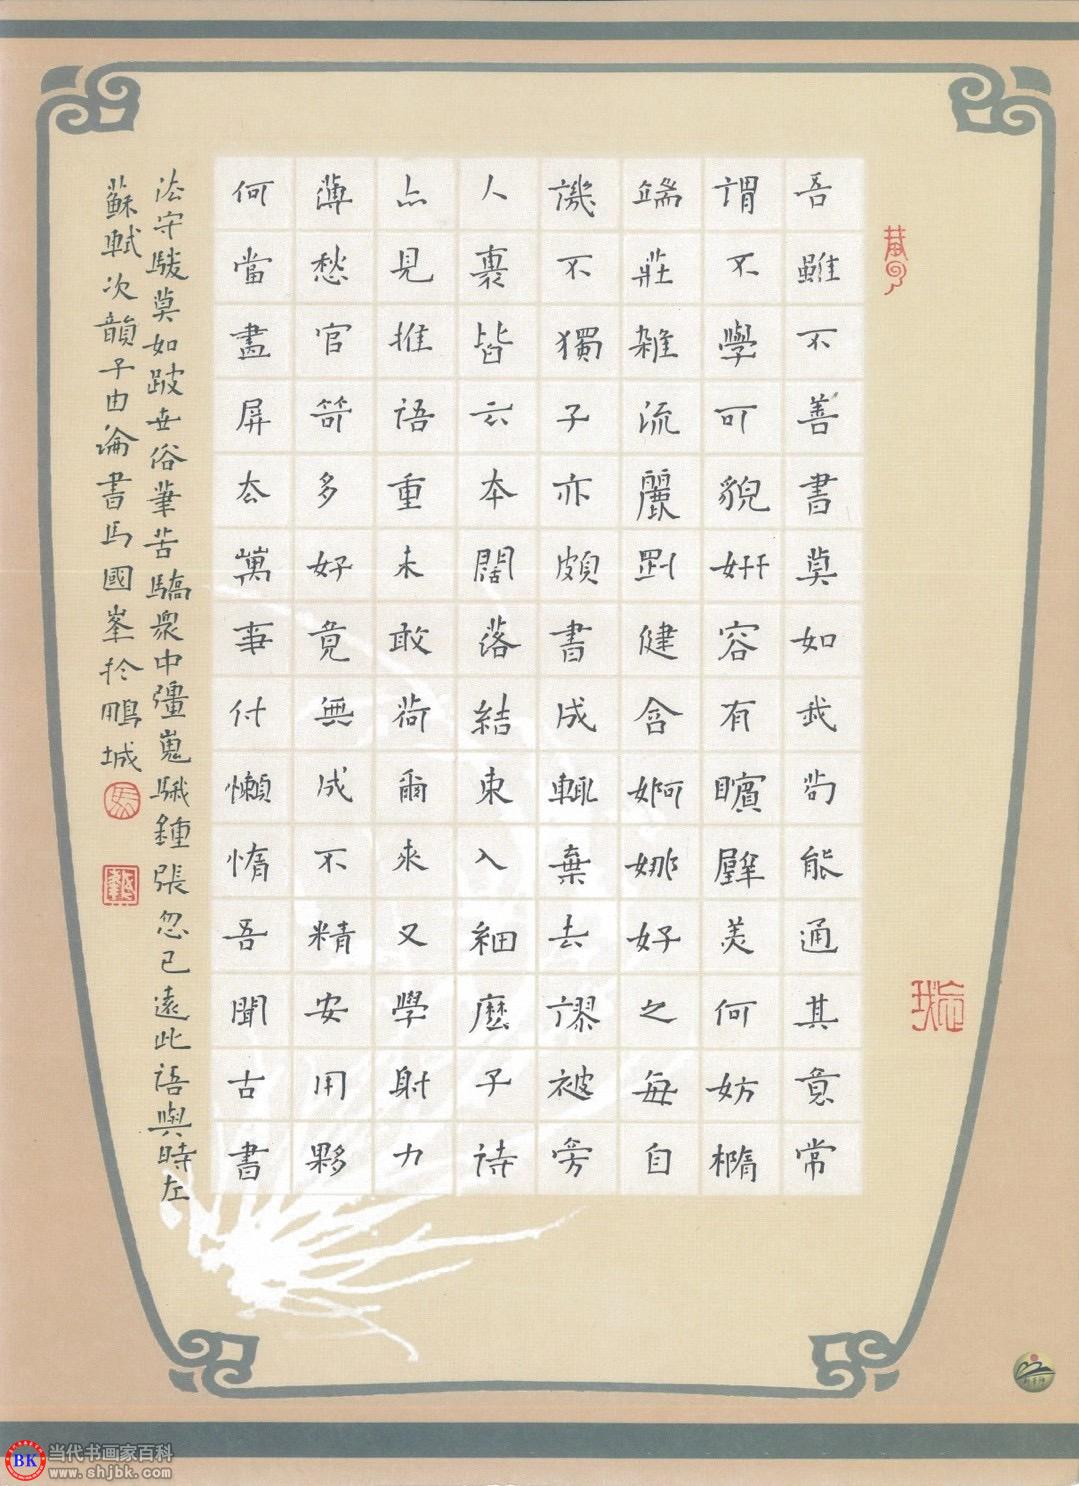 吾雖不善書莫如我苟能通其意常
謂不學可貌妍容有矉璧美何妨橢
端莊雜流麗剛健含婀娜好之每自
譏不獨子亦頗書成輒棄去謬被旁
人裹皆云本闊落結束入細麼子詩
亦見推語重未敢荷爾來又學射力
薄愁官笴多好竟無成不精安用夥
何當盡屏去萬事付懶惰吾聞古書
法守駿莫如跛世俗筆苦驕眾中彊嵬騀鍾張忽已遠此語與時左
蘇軾次韻子由論書馬國峯於鵬城
當代书画家百科
www.shjbk.com
BK